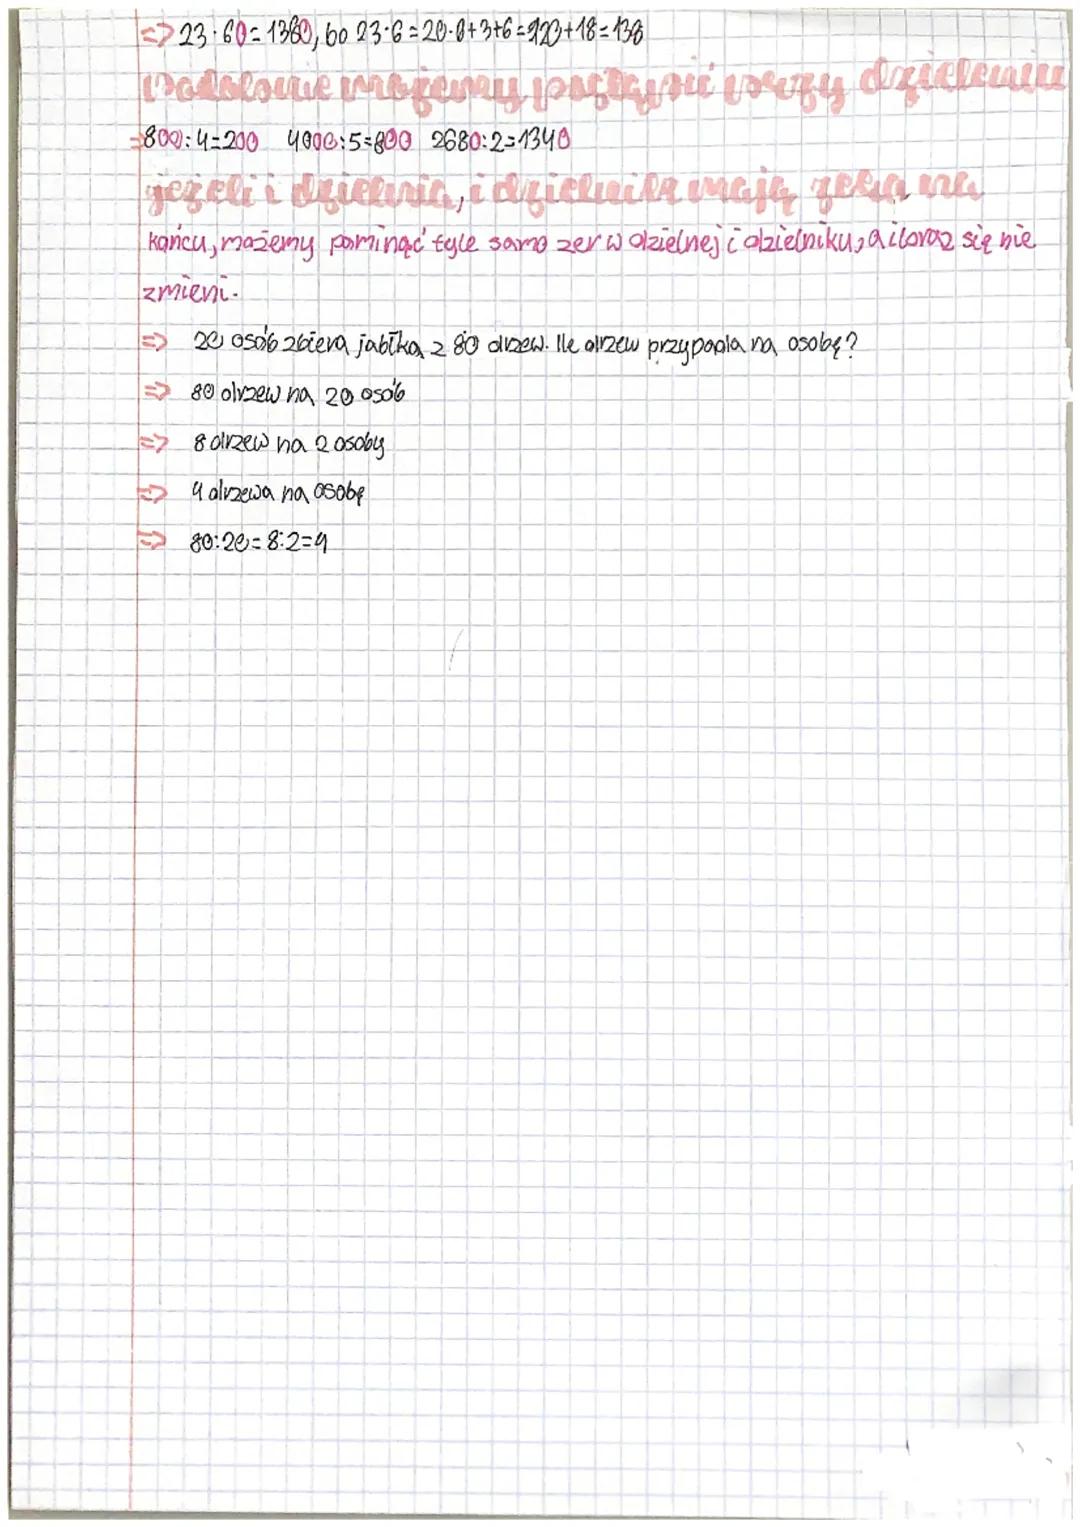 => 23·60=1380, bo 23·6=20·6+3+6=120+18=138
Podobnie możemy postąpić przy dzieleniu
=>800:4=200 4000:5=800 2680:2=1340
jeżeli i dzielna, i dzielnik mają zera na
końcu, możemy pominąć tyle samo zer w dzielnej i dzielniku, a iloraz się nie
zmieni.
=> 20 osób zbiera jabłka z 80 drzew. Ile drzew przypada na osobę?
=> 80 drzew na 20 osób
=> 8 drzew na 2 osoby
=> 4 drzewa na osobę
=> 80:20=8:2=4